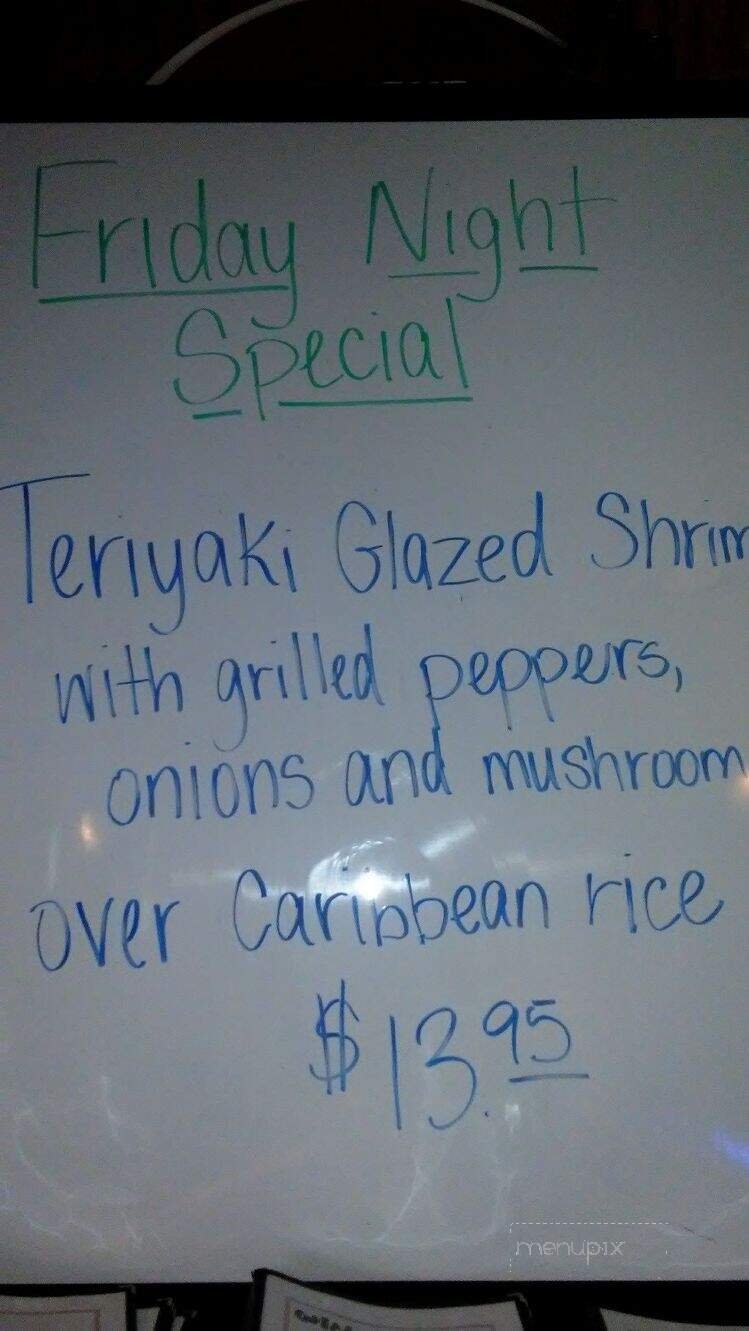 Friday Night
Special
Teriyaki Glazed Shrim
with grilled peppers,
onions and mushroom
over Caribbean rice
$13.95
menupix